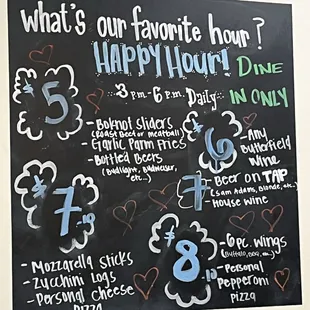 what's our favorite hour?
HAPPY HOUR!
DINE
IN ONLY
3 pm - 6 pm. Daily
$5
- Boknot sliders
(Roast Beef or meatball)
- Garlic Parm Fries
- Bottled Beers
(Budlight, Budweiser,
etc...)
$6
- Any
Butterfield
Wine
$7
- Beer on TAP
(Sam Adams, Blonde, etc..)
- House wine
$7.
- Mozzarella Sticks
- Zucchini Logs
- Personal Cheese
PIZZA
$8.
- 6 pc. Wings
- Personal
Pepperoni
PIZZA